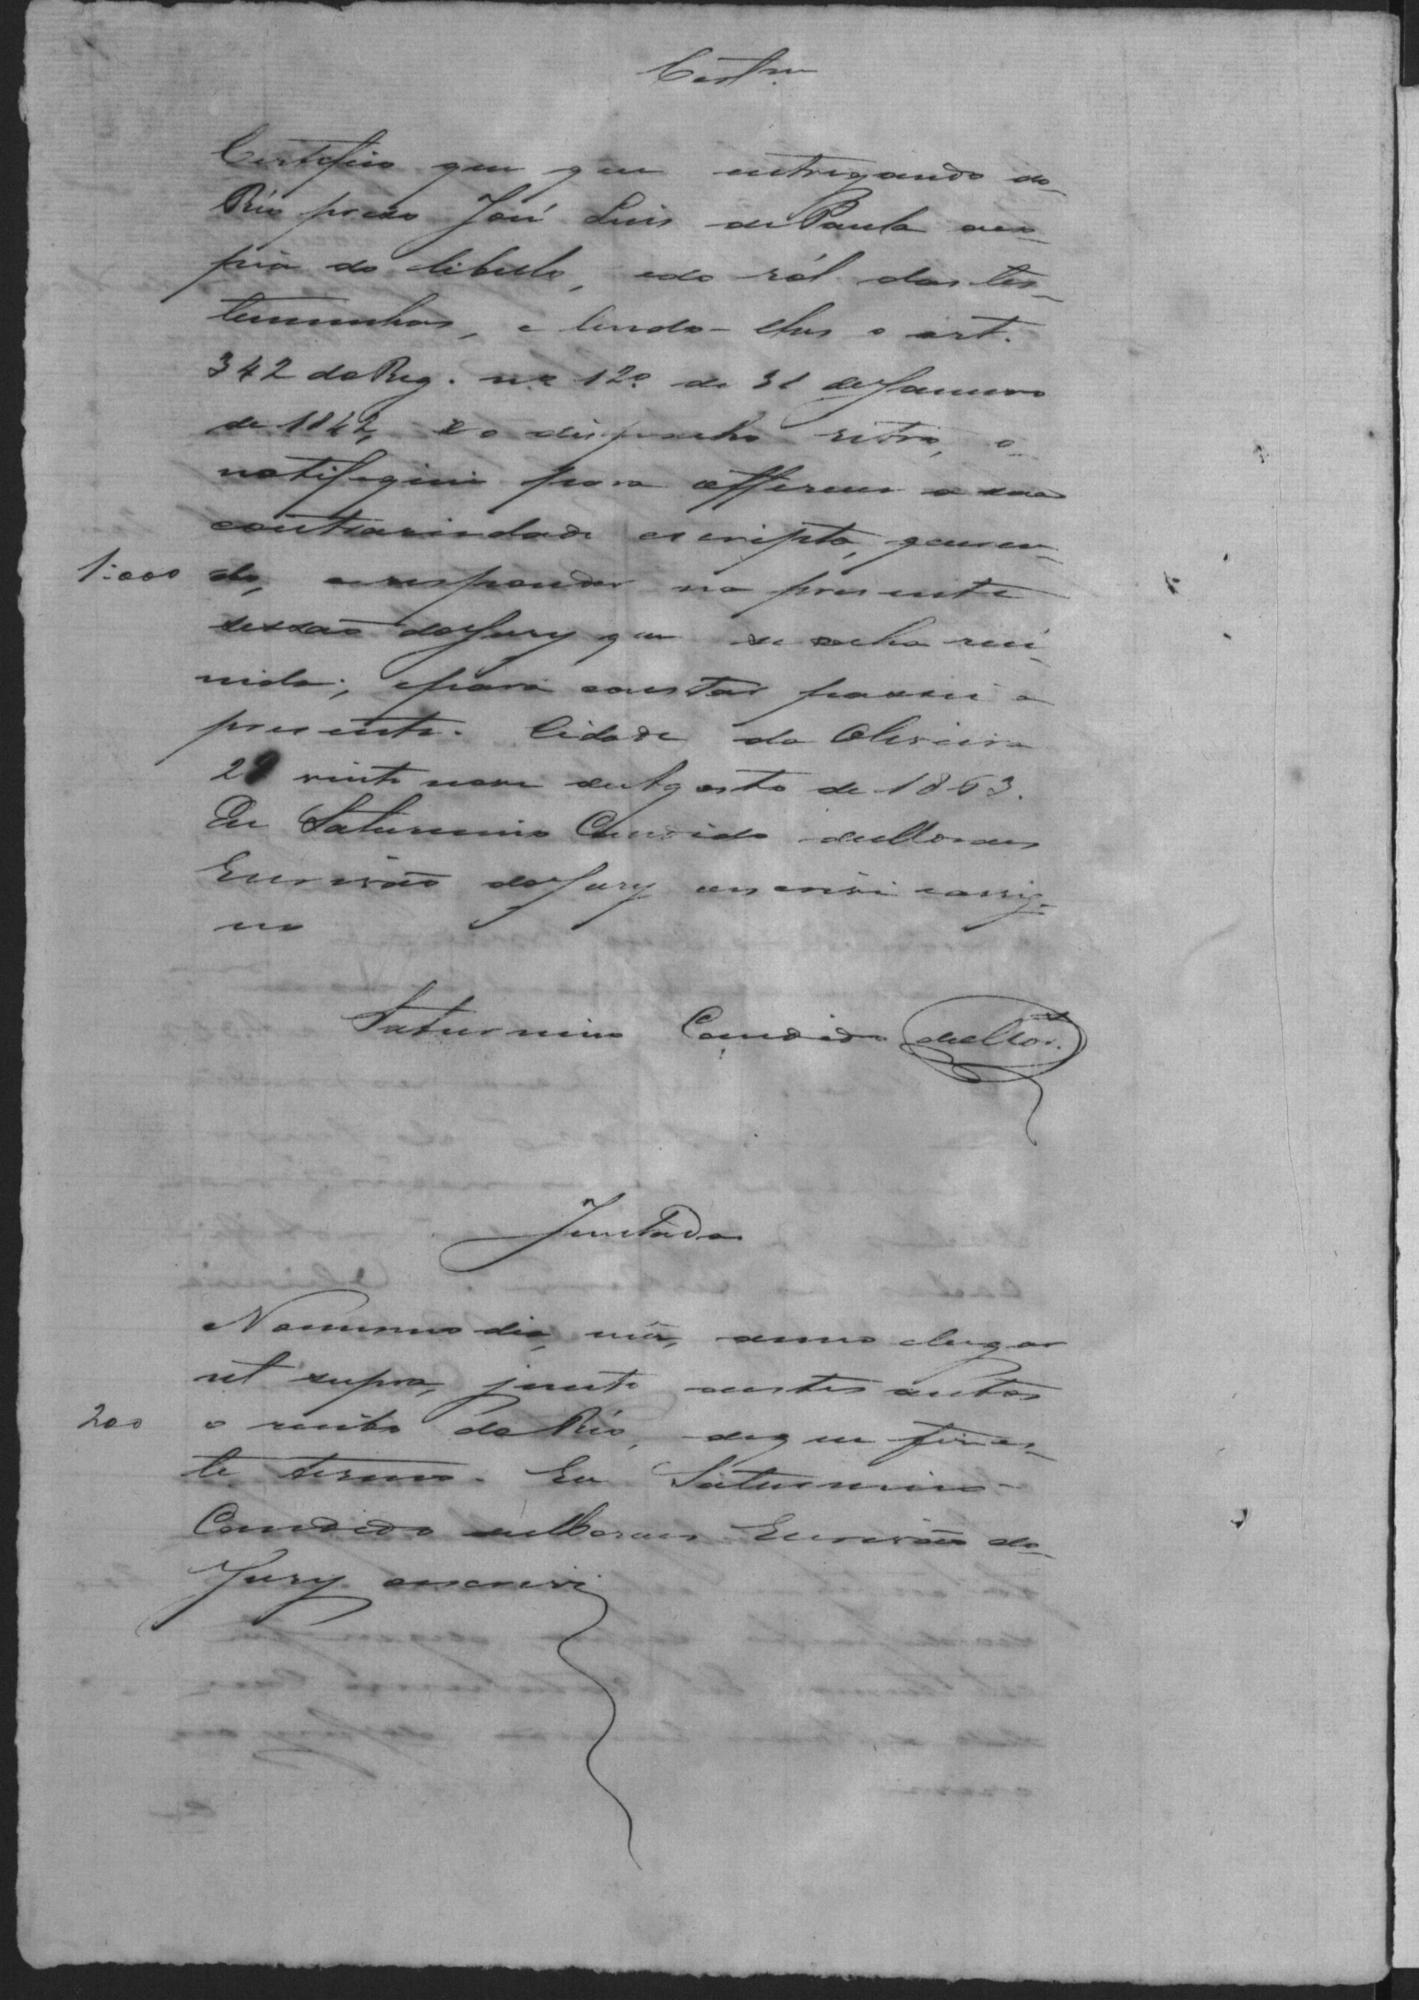 Certm
Certefico que que entregando ao
Réo prezo José Luis de Paula aco-
pia do libello, edo ról das tes-
temunhas, e lendo-lhes o art.
342 do Reg. nº 120 de 31 de Janeiro
de 1842, e o despacho retro, o
notifiquei para offerecer a sua
contrariedade escripta, queren-
1:000 do, arespponder na presente
sessão do Jury que se acha reú-
nida; epara constar passei a
presente. Cidade da Oliveira
29 vinte nove de Agosto de 1863.
Eu Saturnino Candido de Moraes
Escrivão do Jury oescrevi eassig-
no
Saturnino Candido de Mor.es
Juntada
No mesmo dia, mês, anno elugar
ut supra, junto aestes autos
200 o recibo do Réo, doque fiz es-
te termo. Eu Saturnino
Candido de Moraes Escrivão do
Jury oescrevi